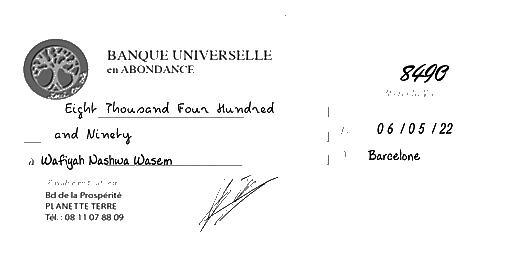 BANQUE UNIVERSELLE
en ABONDANCE
8490
Eight Thousand Four Hundred
and Ninety
06/05/22
à Wafiyah Nashwa Wasem
Barcelone
Bd de la Prospérité
PLANETTE TERRE
Tél. : 08 11 07 88 09